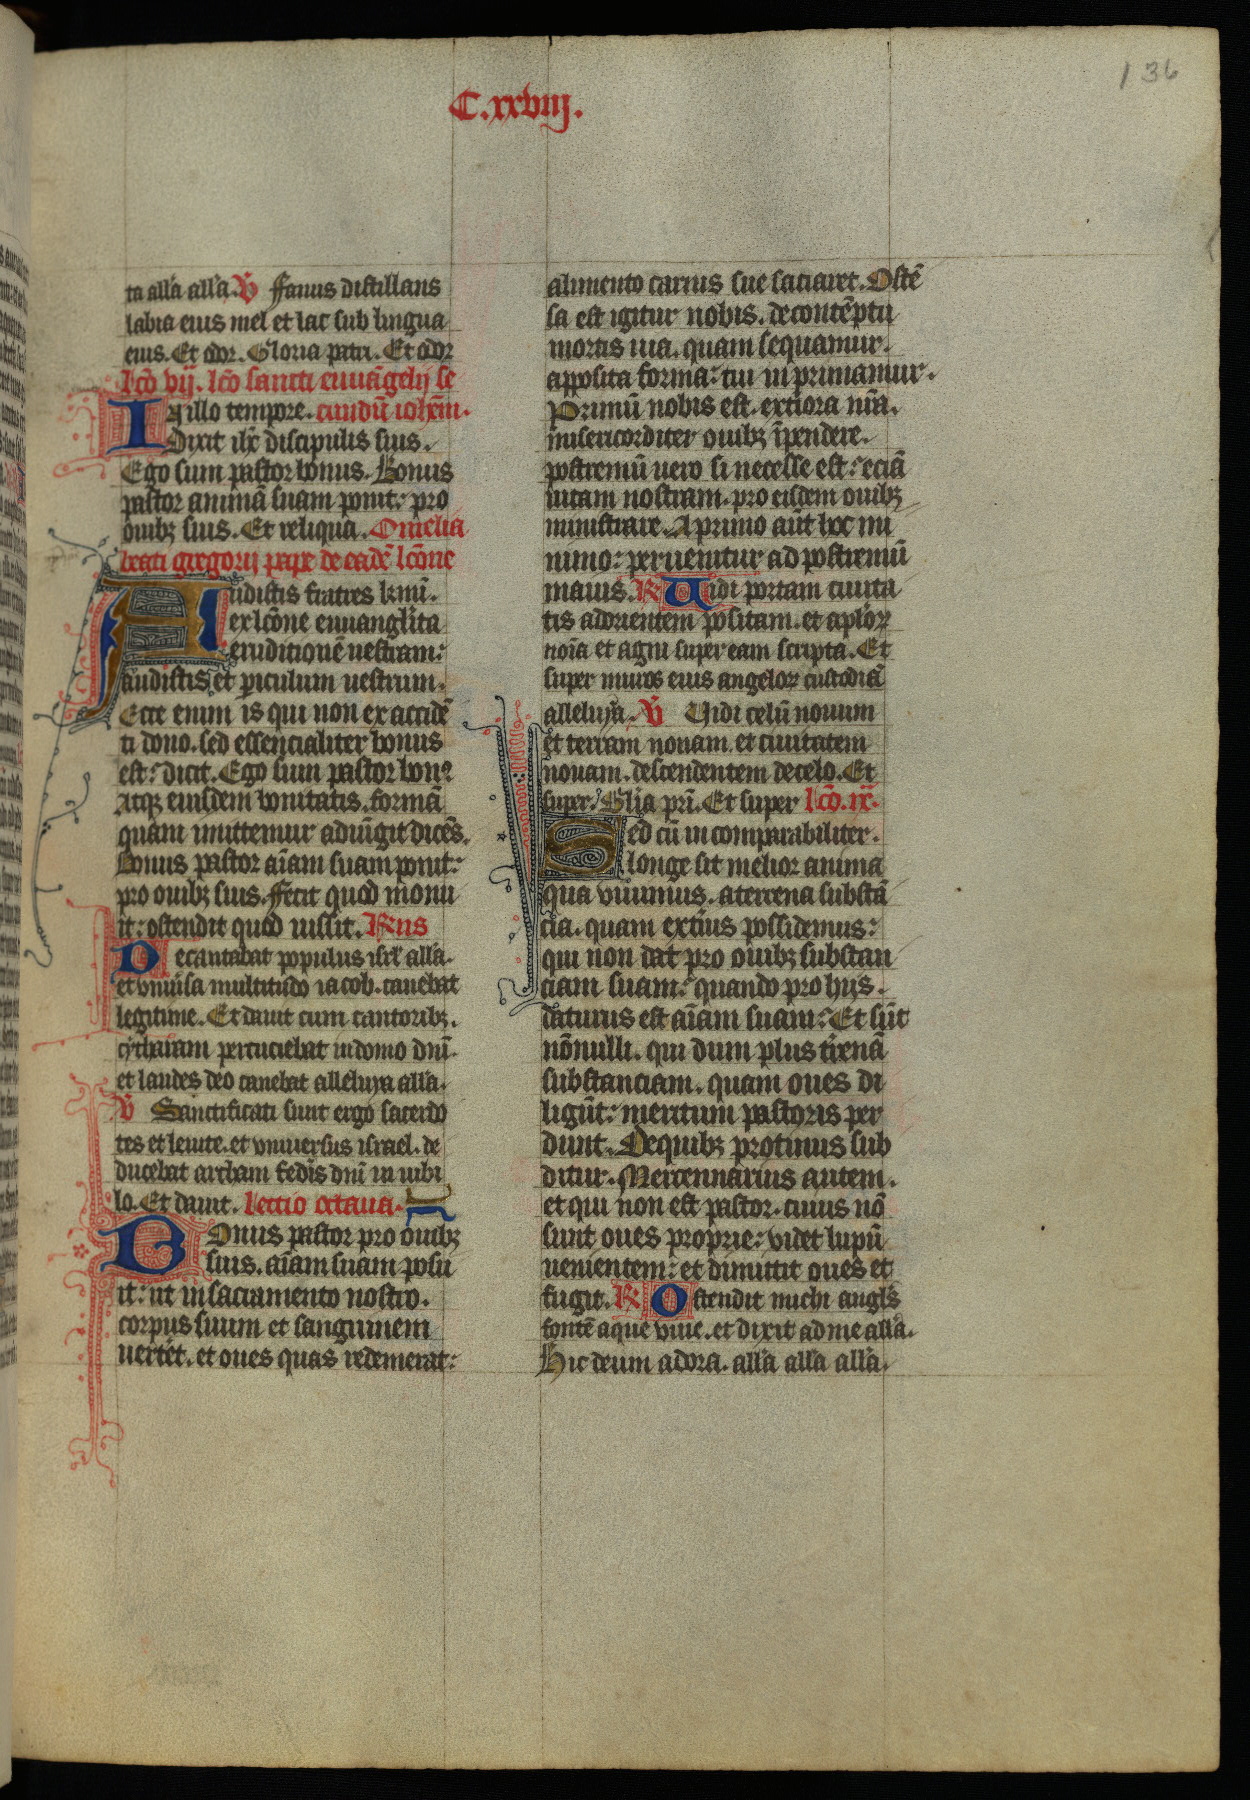 136
C.xxviij.
ta all'a all'a. V Fauus distillans
labia eius mel et lac sub lingua
eius. Et odor. Gloria patri. Et odor
lcō vij. lcō sancti euuāgelij se
In illo tempore. cundū iohēm.
Dixit ihc̄ discipulis suis.
Ego sum pastor bonus. Bonus
pastor animā suam ponit: pro
ouibꝫ suis. Et reliqua. Omelia
beati gregorij pape de eadē lcōne
Audistis fratres kmī.
ex lcōne euuanglīca
eruditionē uestram:
audistis et piculum uestrum.
Ecce enim is qui non ex accidē
ti dono. sed essencialiter bonus
est: dicit. Ego sum pastor bonꝰ
Atqꝫ eiusdem bonitatis. formā
quam imittemur adiūgit dicēs.
Bonus pastor aīam suam ponit:
pro ouibꝫ suis. Fecit quod monu
it: ostendit quod iussit. Rn̄s
Decantabat populus isrl' all'a.
et vniūsa multitudo iacob. canebat
legitime. Et dauit cum cantoribꝫ.
cytharam percuciebat in domo dnī.
et laudes deo canebat alleluya all'a.
V Sanctificati sunt ergo sacerdo
tes et leuite. et vniuersus israel. de
ducebat archam fedīs dnī in iubi
lo. Et dauit. lectio octaua.
Bonus pastor pro ouibꝫ
suis. aīam suam posu
it: ut in sacramento nostro.
corpus suum et sanguinem
uertet. et oues quas redemerat:
alimento carnis sue saciaret. Ostē
sa est igitur nobis. de contēptu
mortis uia. quam sequamur.
apposita forma: cui inprimamur.
Primū nobis est. exteriora nrā.
misericorditer ouibꝫ īpendere.
postremū uero si necesse est: eciā
uitam nostram. pro eisdem ouibꝫ
ministrare. A primo aūt hoc mi
nimo: peruenitur ad postremū
maius. R Vidi portam ciuita
tis ad orientem positam. et aplōꝝ
noīa et agni super eam scripta. Et
super muros eius angeloꝝ custodiā
alleluya. V Vidi celū nouum
et terram nouam. et ciuitatem
nouam. descendentem de celo. Et
super. Glīa prī. Et super lcō. ix.
Sed cū incomparabiliter.
longe sit melior anima
qua viuimus. a terrena substā
cia. quam exteūs possidemus:
qui non dat pro ouibꝫ substan
ciam suam: quando pro hijs.
daturus est aīam suam: Et sūt
nōnulli. qui dum plus trēnā
substanciam. quam oues di
ligūt: meritum pastoris per
dunt. De quibꝫ protinus sub
ditur. Mercennarius autem.
et qui non est pastor. cuius nō
sunt oues proprie: videt lupū
uenientem: et dimittit oues et
fugit. R Ostendit michi angls
fontē aque viue. et dixit ad me all'a.
Hic deum adora. all'a all'a all'a.